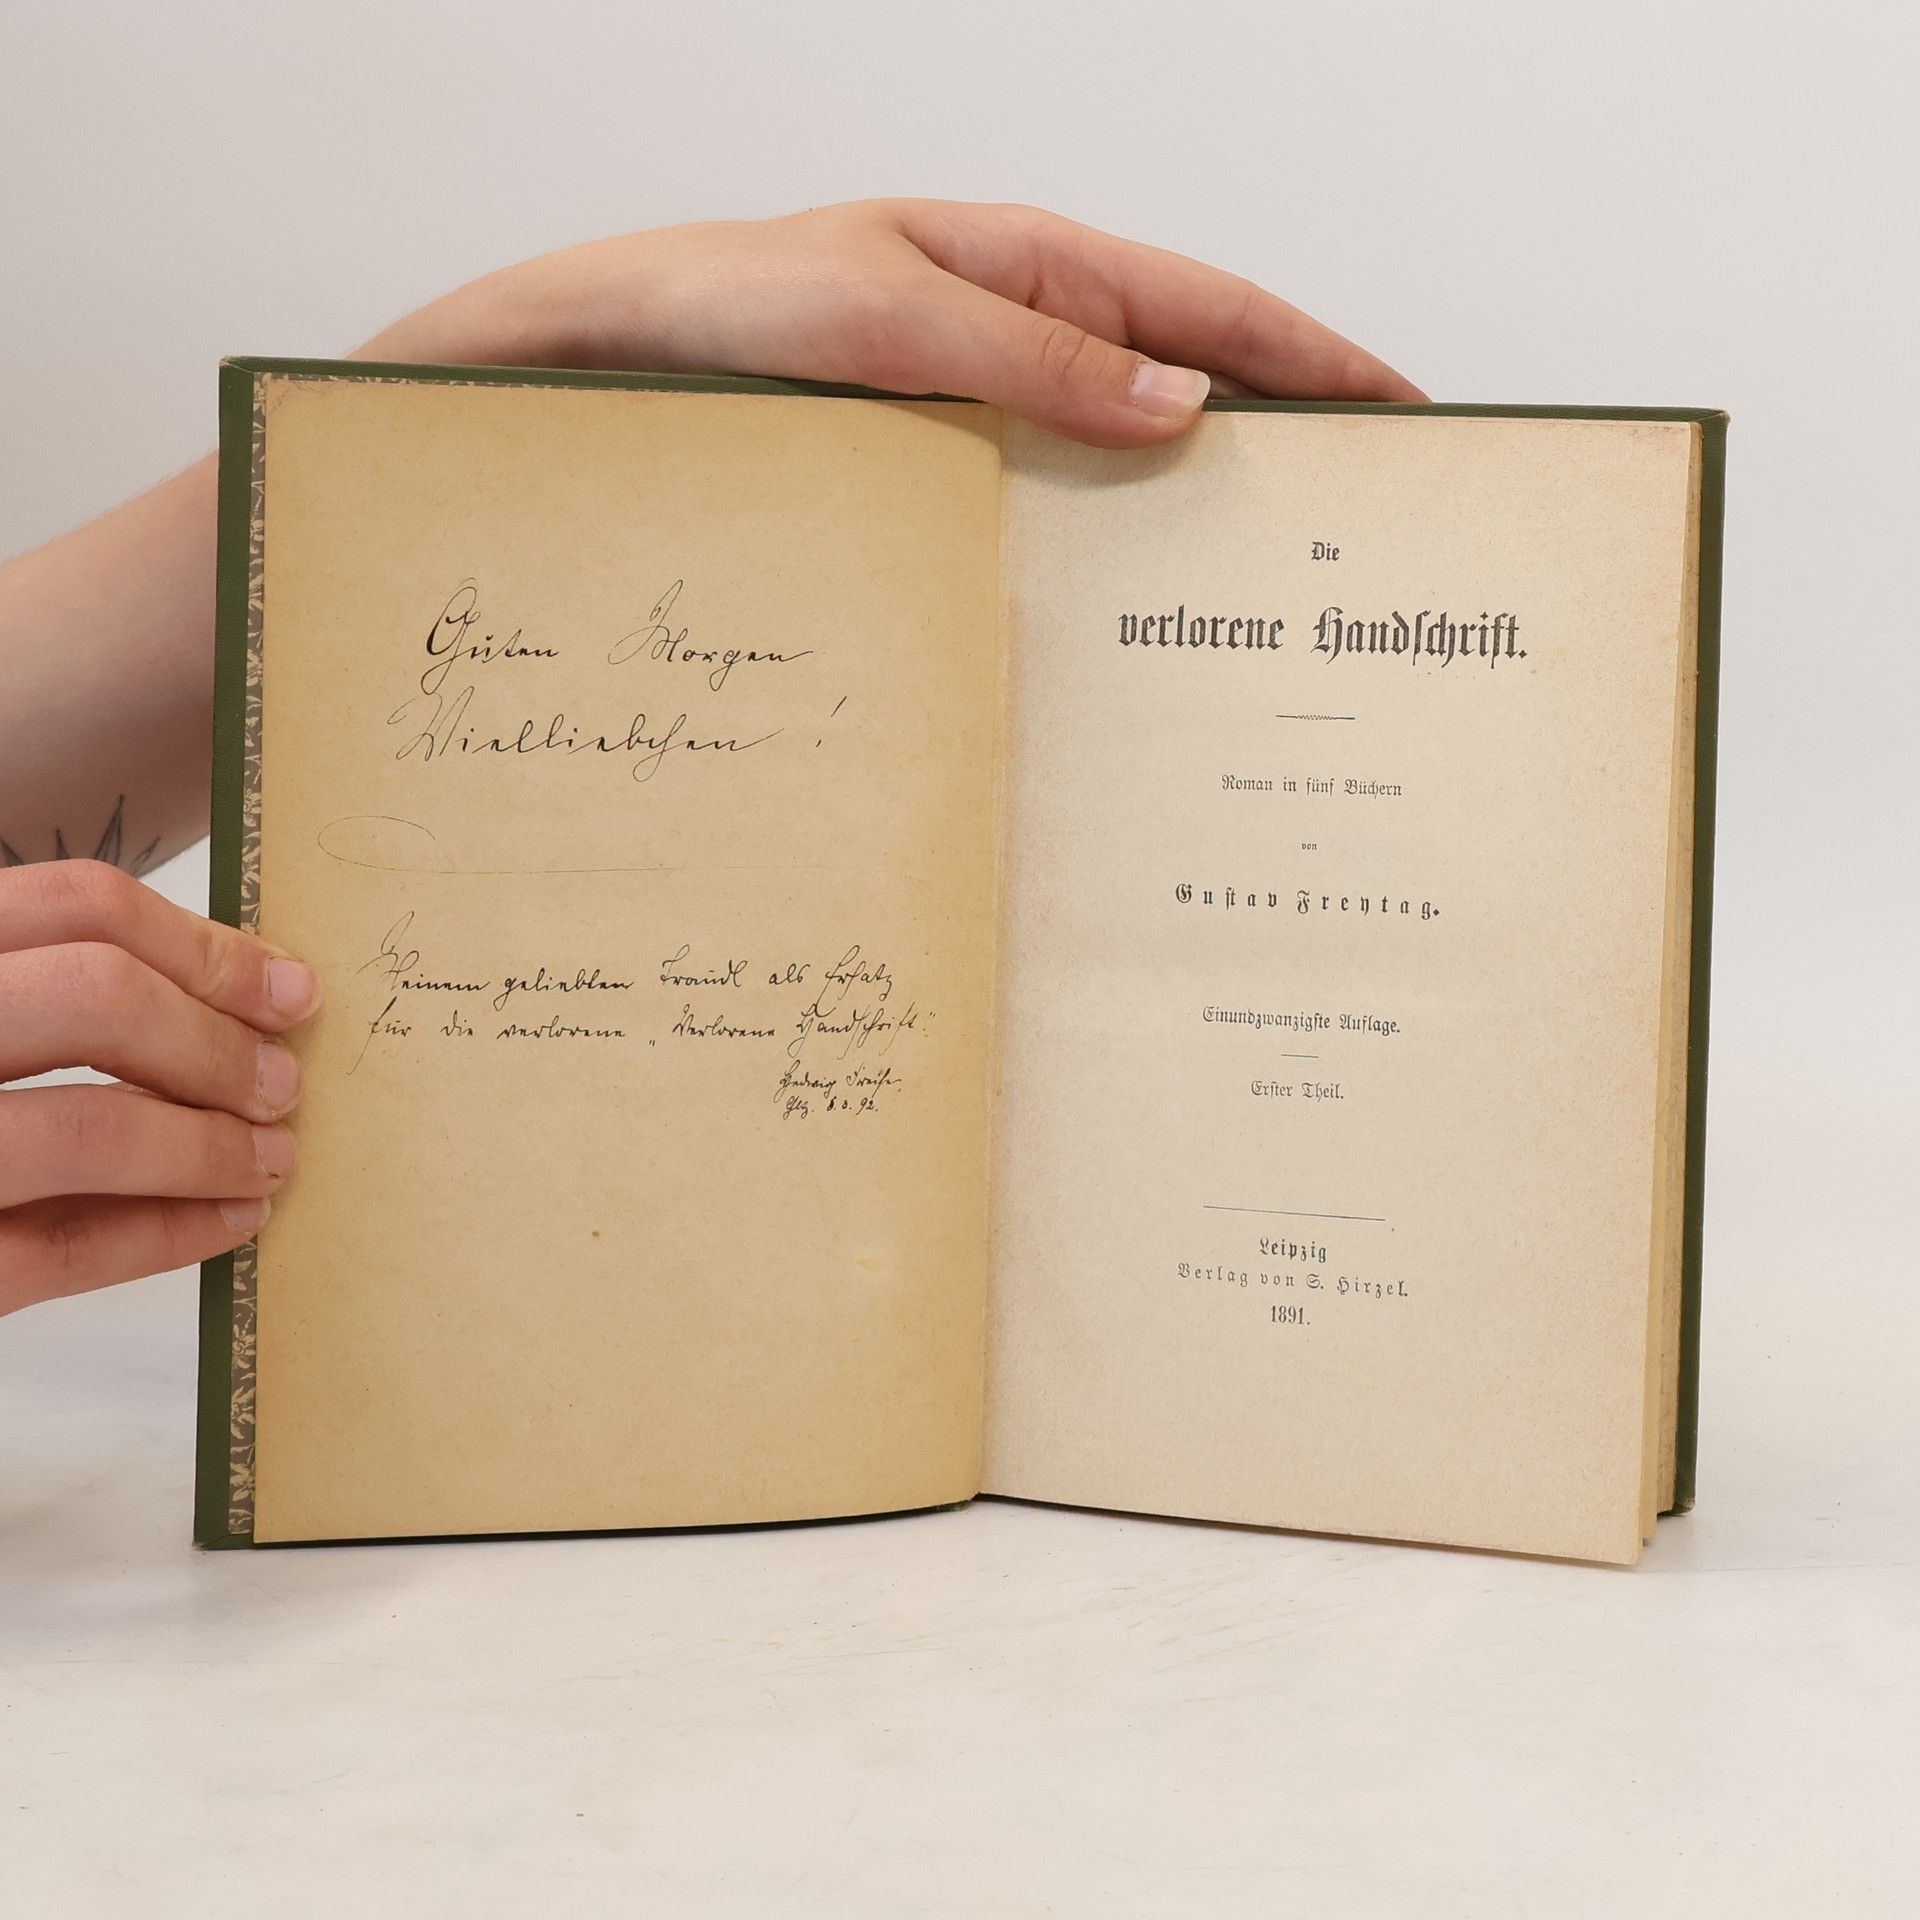 Guten Morgen
Vielliebchen !
Meinem geliebten Traudl als Ersatz
für die verlorene „Verlorene Handschrift“
Hedwig
3. 92.
Die
verlorene Handſchrift.
Roman in fünf Büchern
von
Guſtav Freytag.
Einundzwanzigſte Auflage.
Erſter Theil.
Leipzig
Verlag von S. Hirzel.
1891.